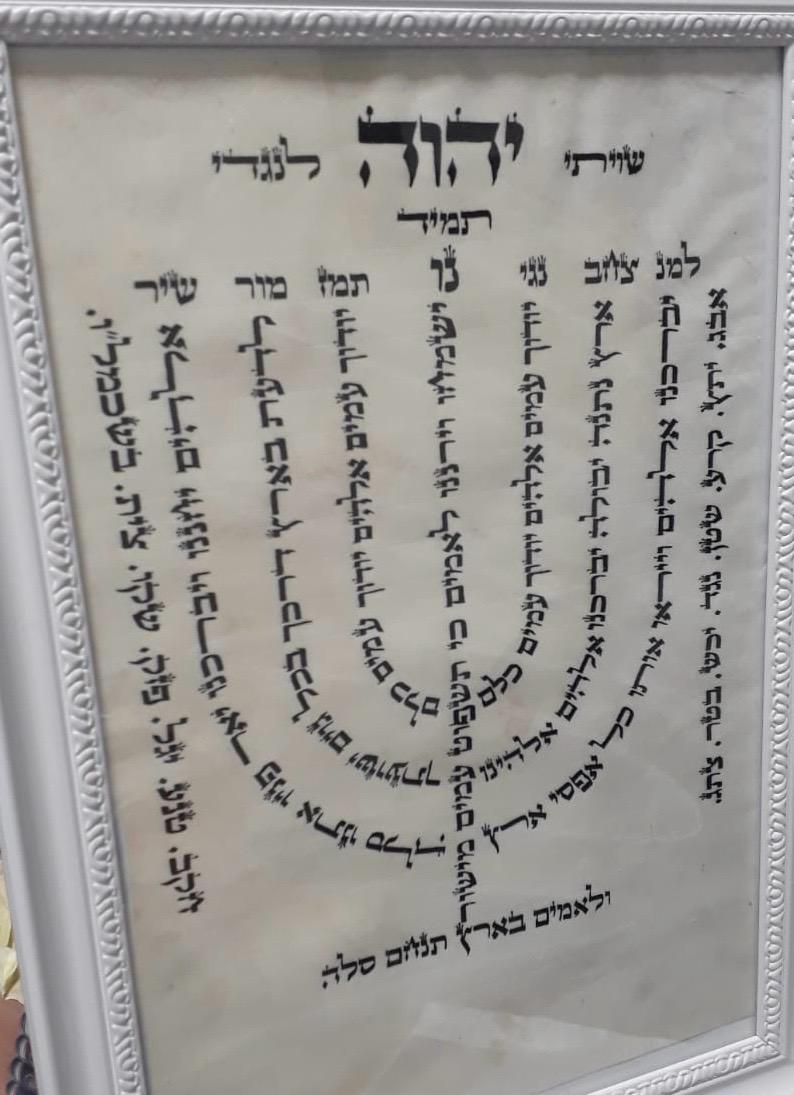 שויתי יהוה לנגדי
תמיד
למנ צחב נגי נו תמז מור שיר
אבג. יתץ. קרע. שטן. נגד. יכש. בטר. צתג.
יברכנו אלהים וייראו אותו כל אפסי ארץ
ארץ נתנה יבולה יברכנו אלהים אלהינו
יודוך עמים אלהים יודוך עמים כלם
ישמחו וירננו לאמים כי תשפוט עמים מישור
יודוך עמים אלהים יודוך עמים כלם
לדעת בארץ דרכך בכל גוים ישועתך
אלהים יחננו ויברכנו יאר פניו אתנו סלה
חקב. טנע. יגל. פזק. שקו. צית. בשכמל״ו.
ולאמים בארץ תנחם סלה